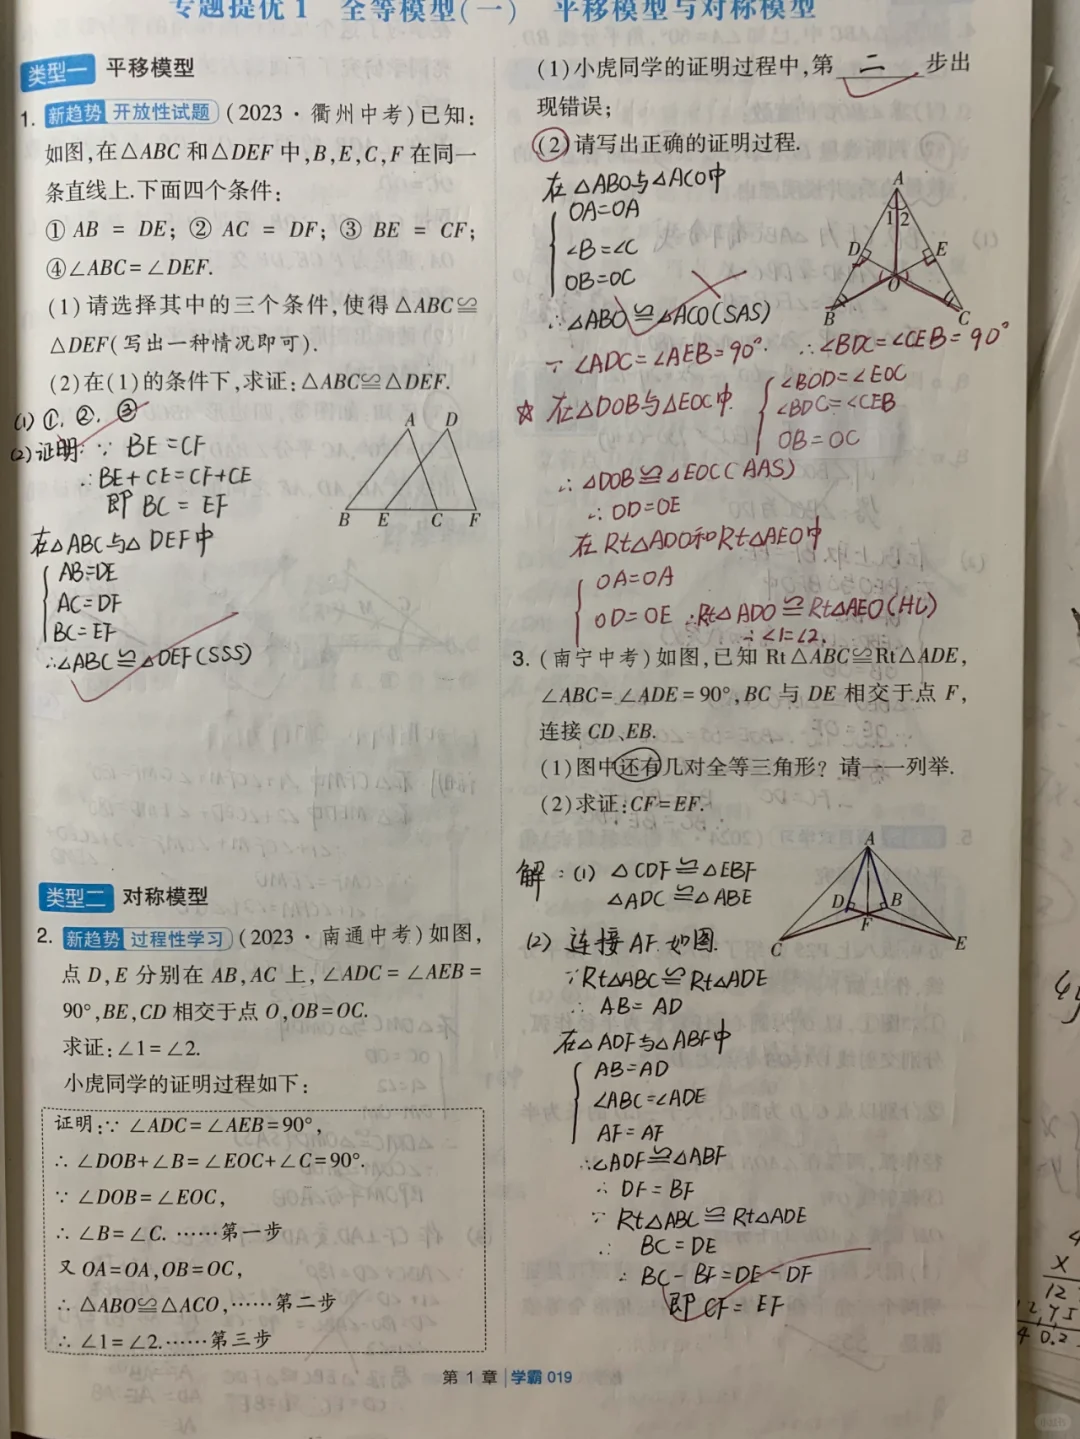 专题提优1 全等模型(一) 平移模型与对称模型
类型一 平移模型
1. 新趋势 开放性试题 (2023·衢州中考)已知:
如图,在△ABC和△DEF中,B,E,C,F在同一
条直线上.下面四个条件:
① AB = DE; ② AC = DF; ③ BE = CF;
④∠ABC=∠DEF.
(1)请选择其中的三个条件,使得△ABC≌
△DEF(写出一种情况即可).
(2)在(1)的条件下,求证:△ABC≌△DEF.
(1) ①, ②, ③
(2)证明: ∵ BE=CF
∴BE+CE=CF+CE
即 BC=EF
在△ABC与△DEF中
AB=DE
AC=DF
BC=EF
∴△ABC≌△DEF(SSS)
A D
B E C F
类型二 对称模型
2. 新趋势 过程性学习 (2023·南通中考)如图,
点D,E分别在AB,AC上,∠ADC=∠AEB=
90°,BE,CD相交于点O,OB=OC.
求证:∠1=∠2.
小虎同学的证明过程如下:
证明:∵ ∠ADC=∠AEB=90°,
∴ ∠DOB+∠B=∠EOC+∠C=90°.
∵ ∠DOB=∠EOC,
∴ ∠B=∠C. ……第一步
又 OA=OA,OB=OC,
∴ △ABO≌△ACO,……第二步
∴ ∠1=∠2.……第三步
(1)小虎同学的证明过程中,第 二 步出
现错误;
(2)请写出正确的证明过程.
在△ABO与△ACO中
OA=OA
∠B=∠C
OB=OC
∴△ABO≌△ACO(SAS)
∵ ∠ADC=∠AEB=90°. ∴∠BDC=∠CEB=90°
☆ 在△DOB与△EOC中
∠BOD=∠EOC
∠BDC=∠CEB
OB=OC
∴△DOB≌△EOC(AAS)
∴OD=OE
在Rt△ADO和Rt△AEO中
OA=OA
OD=OE ∴Rt△ADO≌Rt△AEO(HL)
∴∠1=∠2.
A
1 2
D E
O
B C
3. (南宁中考)如图,已知Rt△ABC≌Rt△ADE,
∠ABC=∠ADE=90°,BC与DE相交于点F,
连接CD、EB.
(1)图中还有几对全等三角形?请一一列举.
(2)求证:CF=EF.
解:(1) △CDF≌△EBF
△ADC≌△ABE
(2) 连接AF.如图.
∵Rt△ABC≌Rt△ADE
∴ AB=AD
在△ADF与△ABF中
AB=AD
∠ABC=∠ADE
AF=AF
∴△ADF≌△ABF
∴ DF=BF
∵ Rt△ABC≌Rt△ADE
∴ BC=DE
∴ BC-BF=DE-DF
即 CF=EF
A
D B
F
C E
第1章 学霸 019